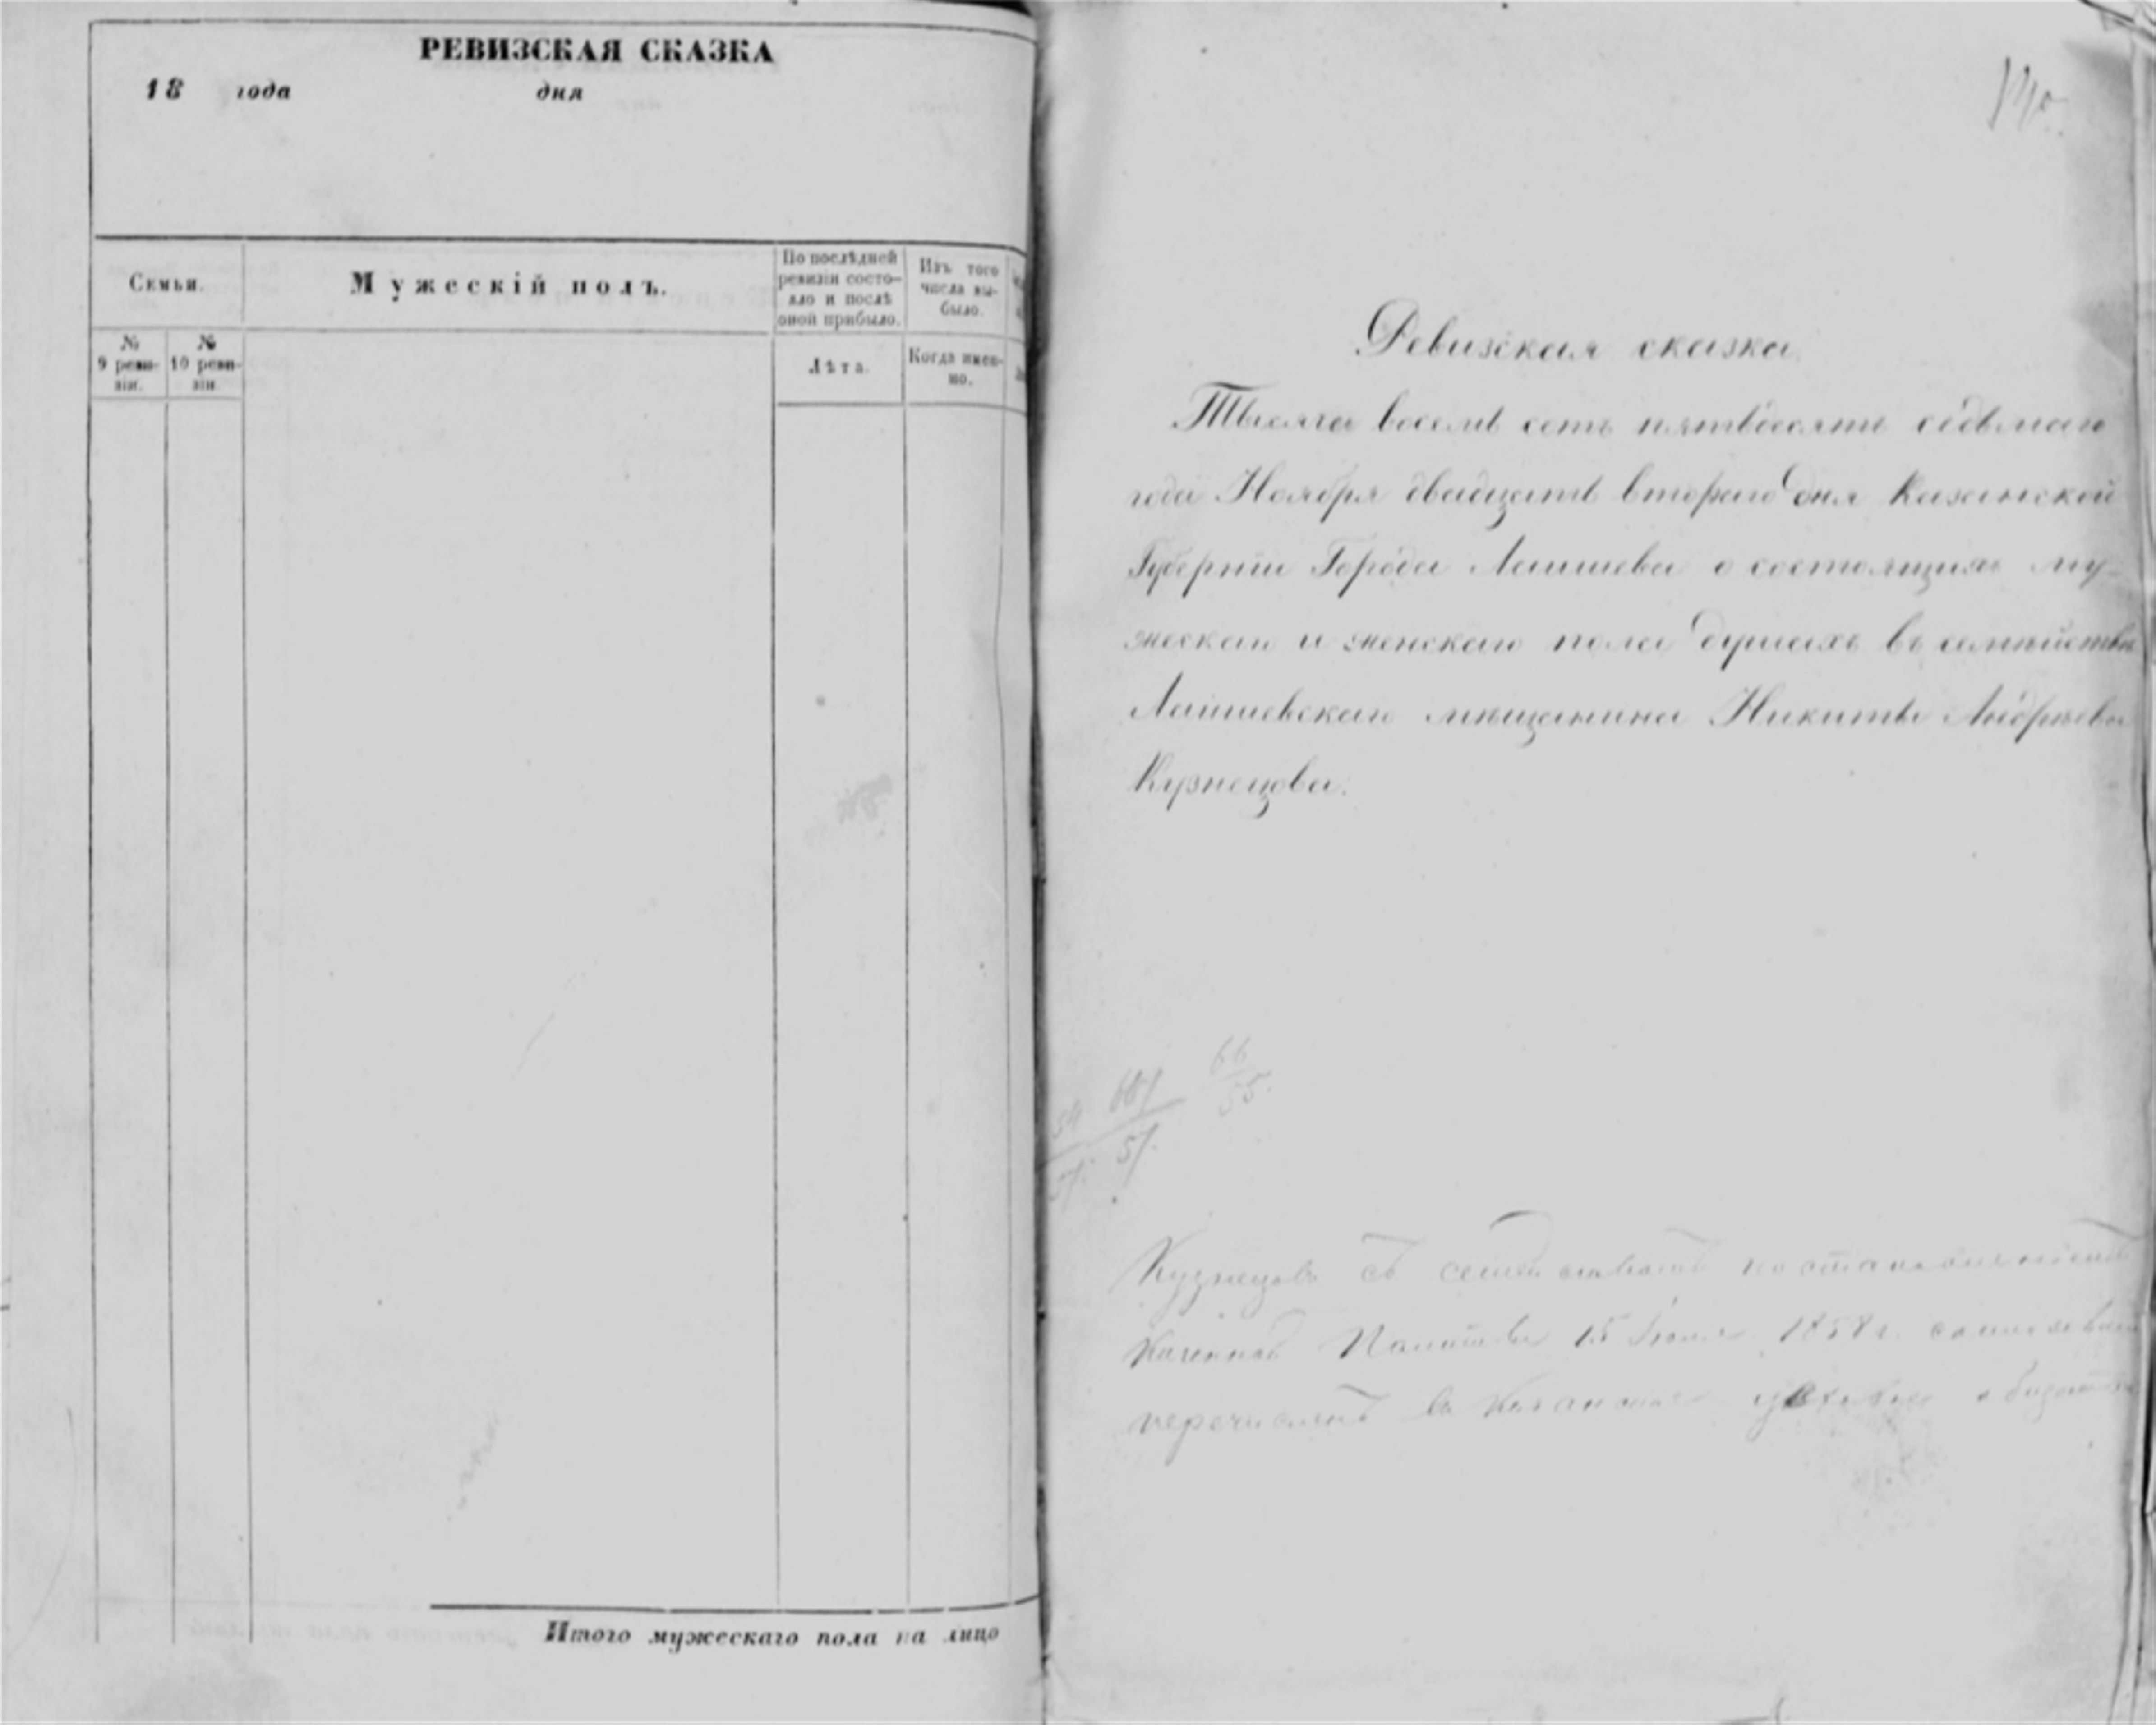 РЕВИЗСКАЯ СКАЗКА
18 года дня
Семьи.
Мужескій полъ.
По послѣдней
ревизіи состо-
яло и послѣ
оной прибыло.
Изъ того
числа вы-
было.
№
9 реви-
зіи.
№
10 реви-
зіи.
Лѣта.
Когда имен-
но.
Итого мужескаго пола на лицо
Ревизская сказка
Тысяча восемь сотъ пятьдесятъ седьмаго
года Ноября двадцать втораго дня Казанской
Губерніи Города Лаишева о состоящихъ му-
жескаго и женскаго пола душахъ въ семействѣ
Лаишевскаго мѣщанина Никиты Андреева
Кузнецова.
66
55.
54
57.
57.
Кузнецовъ съ семействомъ
Палаты 15 1858 г.
перечисленъ въ